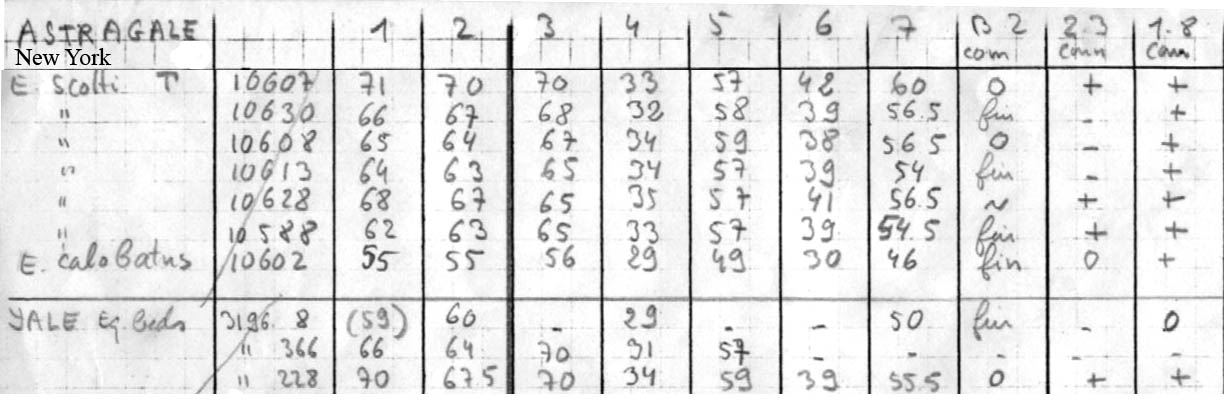 ASTRAGALE 1 2 3 4 5 6 7 B 2 2.3 1.8
New York com conn conn
E. Scotti T 10607 71 70 70 33 57 42 60 0 + +
" 10630 66 67 68 32 58 39 56.5 fin - +
" 10608 65 64 67 34 59 38 56.5 0 - +
" 10613 64 63 65 34 57 39 54 fin - +
" 10628 68 67 65 35 57 41 56.5 ~ + +
" 10588 62 63 65 33 57 39 54.5 fin + +
E. calobatus 10602 55 55 56 29 49 30 46 fin 0 +
YALE Eq. beds 3196 8 (59) 60 - 29 - - 50 fin - 0
" 366 66 64 70 31 57 - - - - -
" 228 70 67.5 70 34 59 39 55.5 0 + +